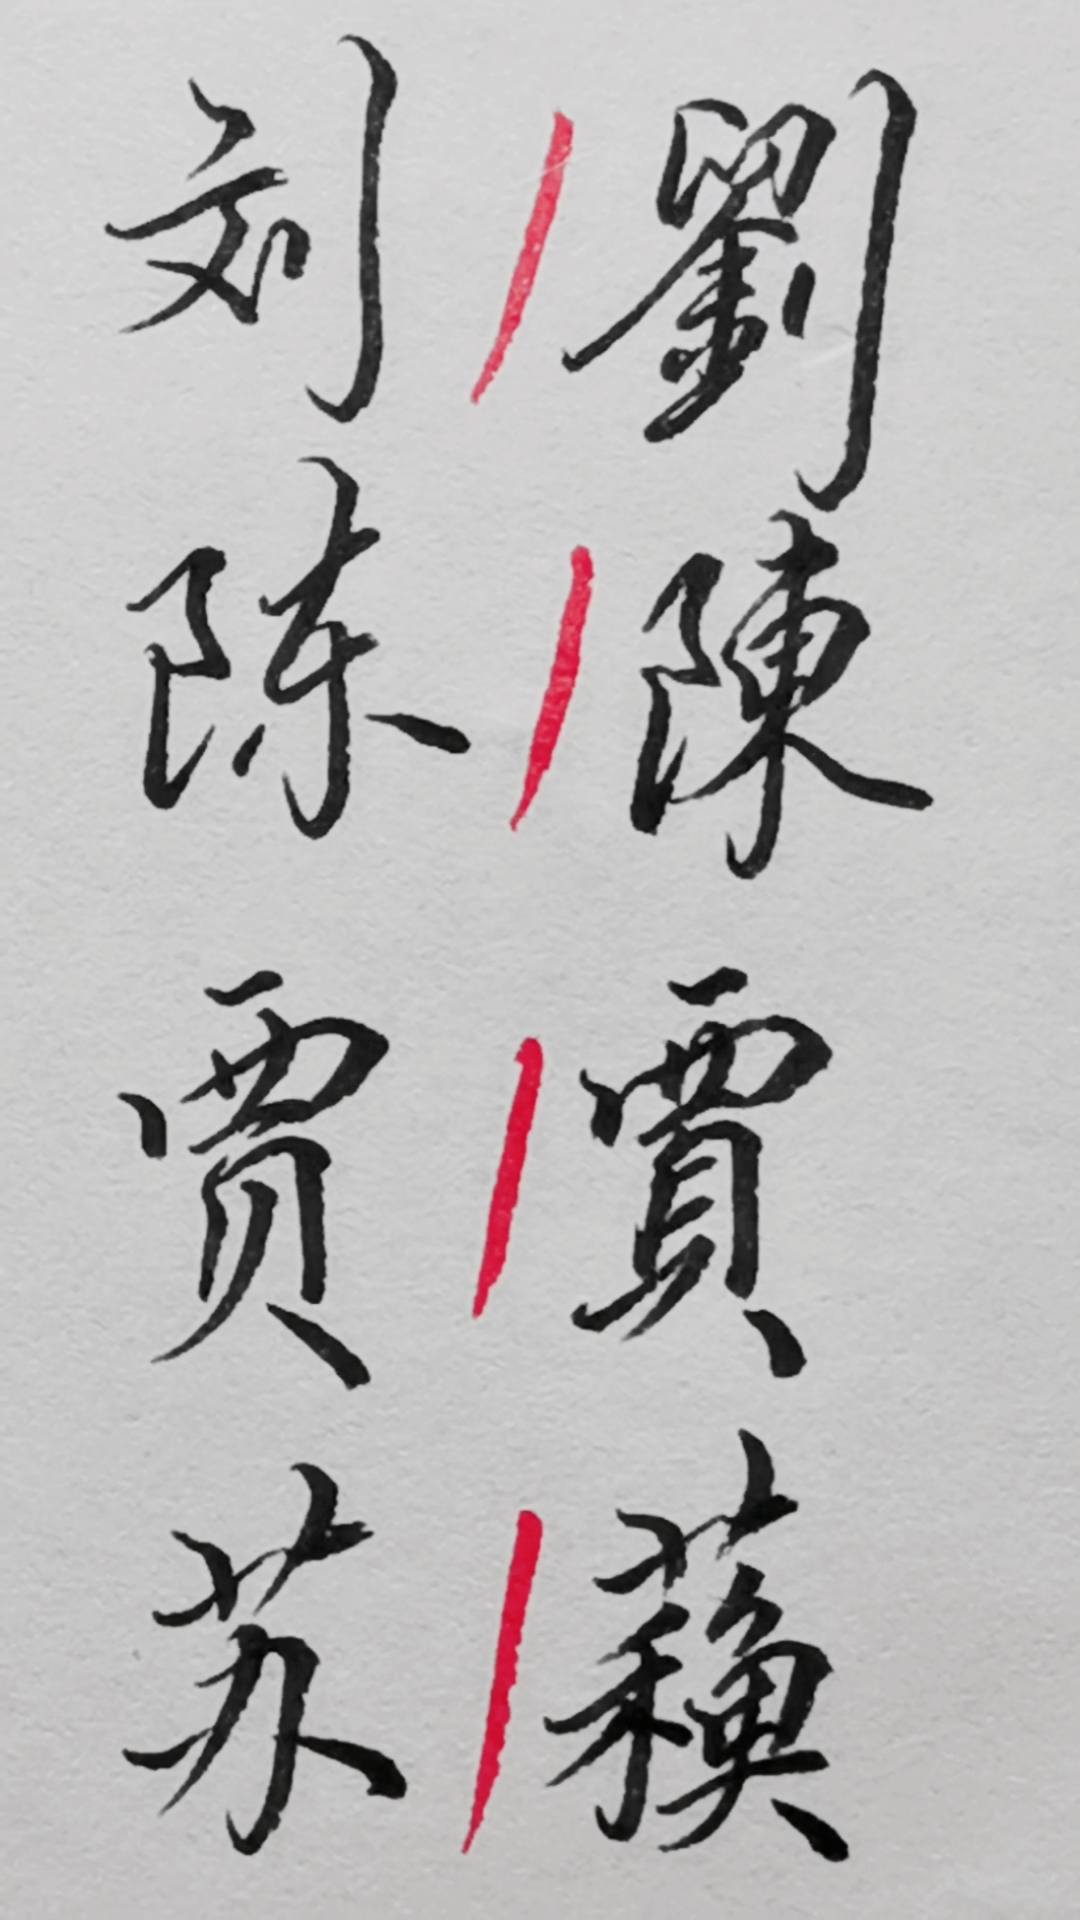 刘/劉
陈/陳
贾/賈
苏/蘓